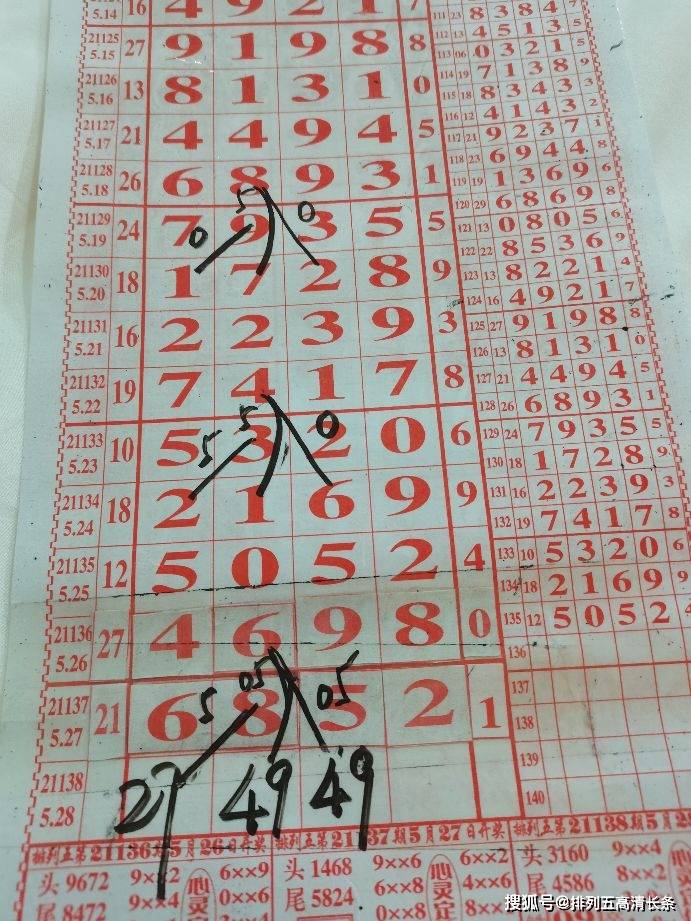 5.14 16 4 9 2 1 7
21125 5.15 27 9 1 9 8 8
21126 5.16 13 8 1 3 1 0
21127 5.17 21 4 4 9 4 5
21128 5.18 26 6 8 9 3 1
5 0
21129 5.19 24 7 9 3 5 5
0
21130 5.20 18 1 7 2 8 9
21131 5.21 16 2 2 3 9 3
21132 5.22 19 7 4 1 7 8
5 5 0
21133 5.23 10 5 3 2 0 6
21134 5.24 18 2 1 6 9 9
21135 5.25 12 5 0 5 2 4
21136 5.26 27 4 6 9 8 0
5 05 05
21137 5.27 21 6 8 5 2 1
21138 5.28
27 49 49
111 23 8 3 8 4 7
112 13 4 5 1 3 5
113 06 0 3 2 1 5
114 19 7 1 3 8 9
115 18 8 3 4 3 3
116 12 4 1 4 3 2
117 21 9 2 3 7 1
118 23 6 9 4 4 8
119 19 1 3 6 9 6
120 29 6 8 6 9 8
121 13 0 8 0 5 6
122 22 8 5 3 6 9
123 13 8 2 2 1 4
124 16 4 9 2 1 7
125 27 9 1 9 8 8
126 13 8 1 3 1 0
127 21 4 4 9 4 5
128 26 6 8 9 3 1
129 24 7 9 3 5 5
130 18 1 7 2 8 9
131 16 2 2 3 9 3
132 19 7 4 1 7 8
133 10 5 3 2 0 6
134 18 2 1 6 9 9
135 12 5 0 5 2 4
136
137
138
139
140
排列五第21136期5月26日开奖 排列五第21137期5月27日开奖 排列五第21138期5月28
头 9672 6××9 心灵 头 1468 9××6 6××2 心灵 头 3160 9××4 心灵
尾 8472 9××4 0××6 尾 5824 6××8 4××6 尾 4586 8××2
搜狐号@排列五高清长条